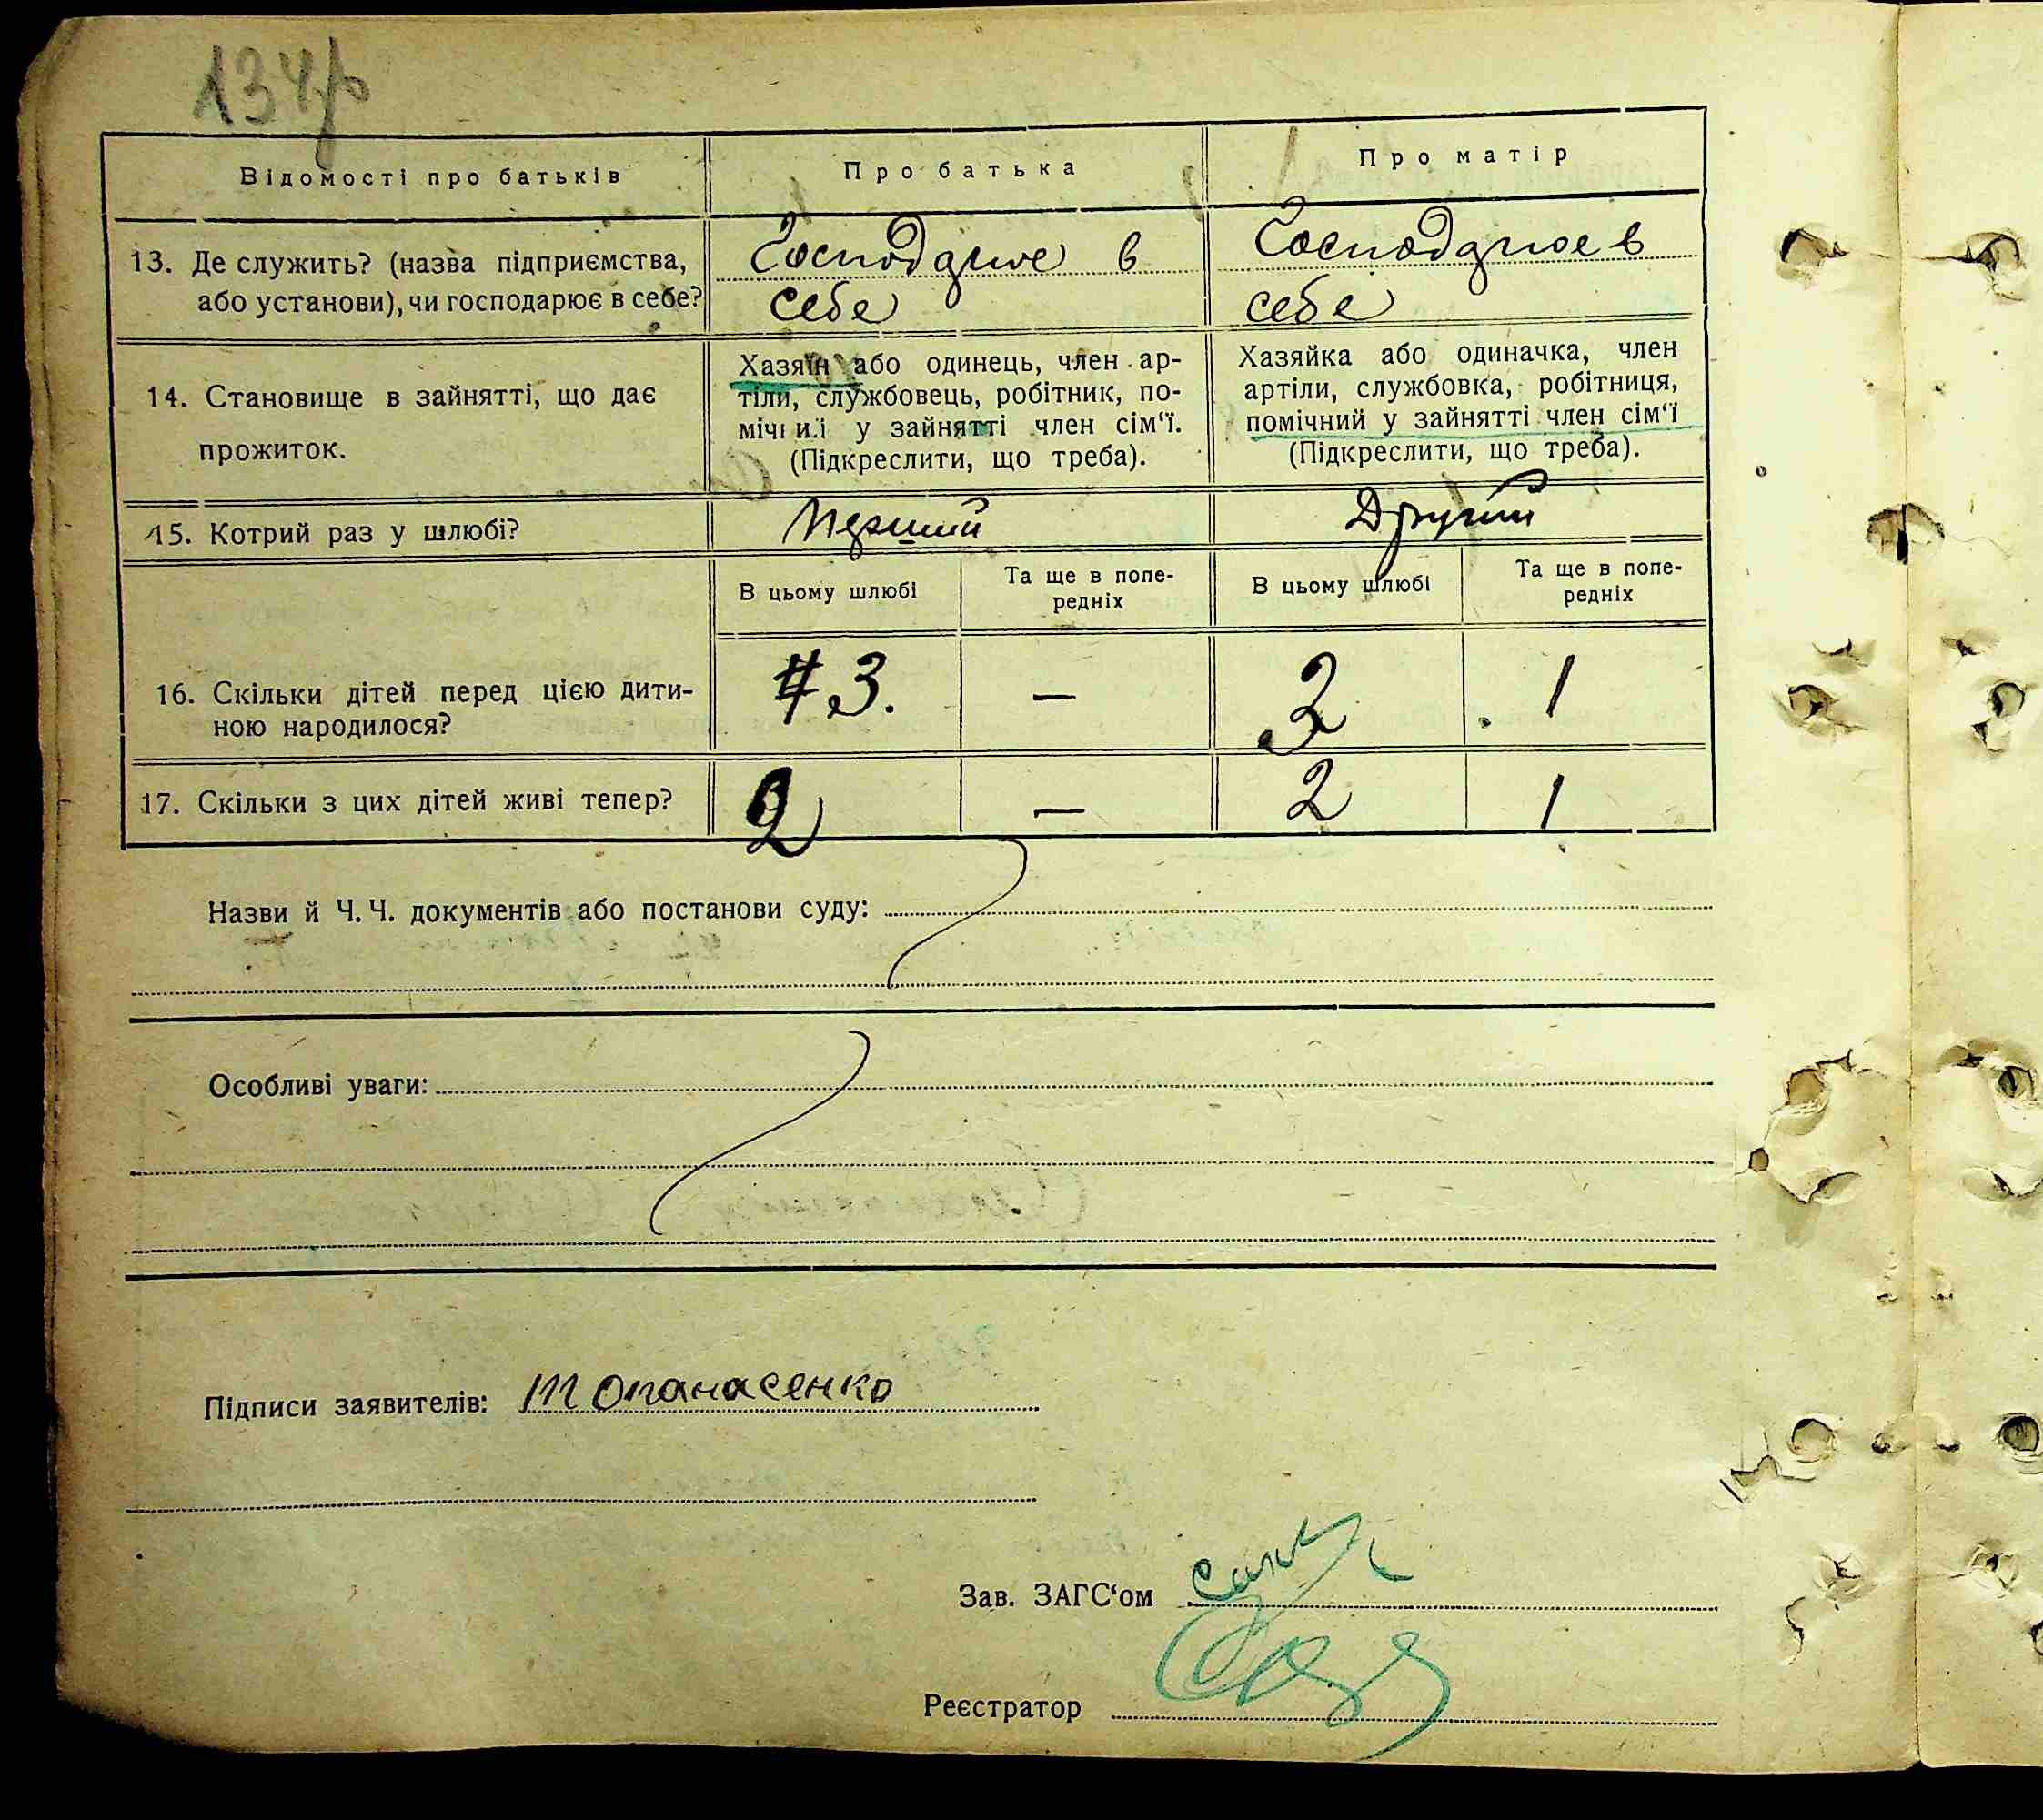 134
Відомості про батьків
Про батька
Про матір
13. Де служить? (назва підприємства,
або установи), чи господарює в себе?
Господарює в
себе
Господарює в
себе
14. Становище в зайнятті, що дає
прожиток.
Хазяїн або одинець, член ар-
тіли, службовець, робітник, по-
мічний у зайнятті член сім‘ї.
(Підкреслити, що треба).
Хазяйка або одиначка, член
артіли, службовка, робітниця,
помічний у зайнятті член сім‘ї
(Підкреслити, що треба).
15. Котрий раз у шлюбі?
Перший
Другий
В цьому шлюбі
Та ще в попе-
редніх
В цьому шлюбі
Та ще в попе-
редніх
16. Скільки дітей перед цією дити-
ною народилося?
3.
—
1
17. Скільки з цих дітей живі тепер?
2
—
2
1
Назви й Ч. Ч. документів або постанови суду:
Особливі уваги:
Підписи заявителів: М Опанасенко
Зав. ЗАГС‘ом
Реєстратор